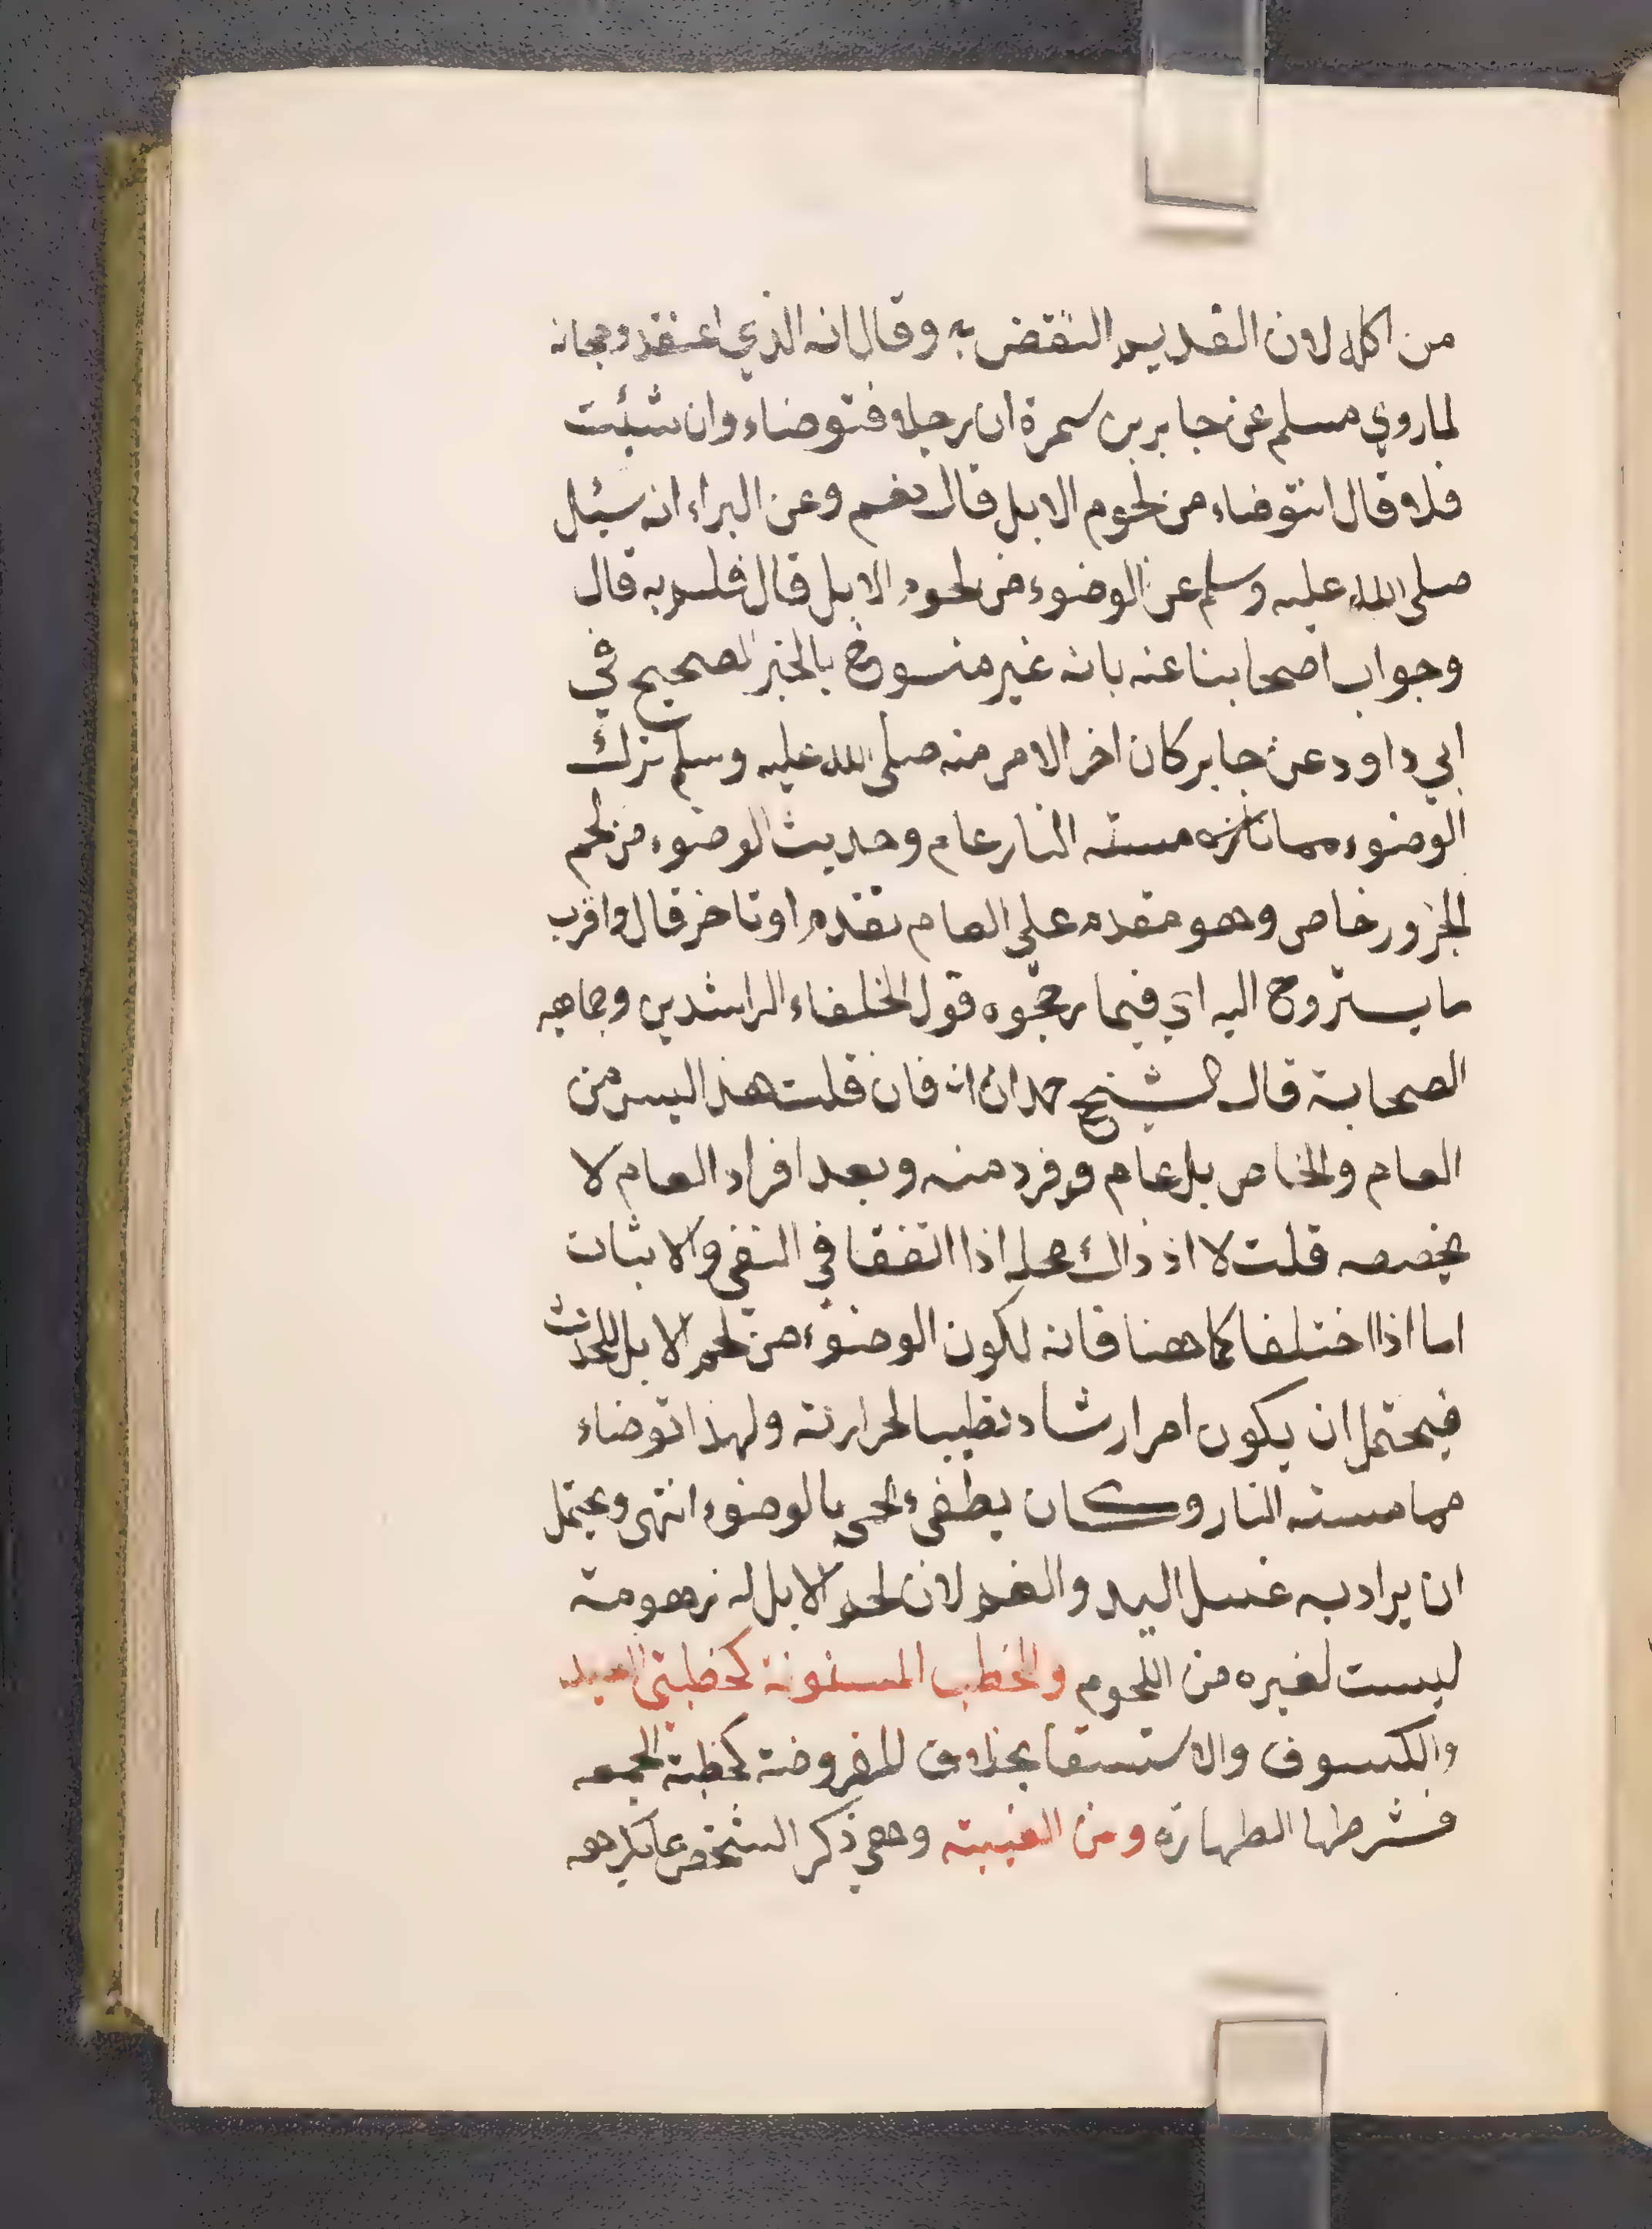 من اكله لان القديم النقض به وقال انه الذي اعتقد رجحانه
لما روي مسلم عن جابر بن سمرة ان رجلا فتوضاء وان شئت
فلا قال انتوضاء من لحوم الابل قال نعم وعن البراء انه سئل
صلى الله عليه وسلم عن الوضوء من لحوم الابل قال قلبه قال
وجواب اصحابنا عنه بانه غير منسوخ بالخبر الصحيح في
ابي داود عن جابر كان اخر الامر منه صلى الله عليه وسلم ترك
الوضوء مما مسته النار عام وحديث الوضوء من لحم
الجزور خاص وهو مقدم على العام تقدم او تاخر قال واقرب
ما يستروح اليه اي فيما رجحوه قول الخلفاء الراشدين وجماهيه
الصحابة قال الشيخ حمدان فان قلت هذا ليس من
العام والخاص بل عام وفرد منه وبعد افراد العام لا
يخصصه قلت لا اذ ذاك محله اذا اتفقا في النفي والاثبات
اما اذا اختلفا كما هنا فانه لكون الوضوء من لحم الابل للحدث
فيحتمل ان يكون امر ارشاد تطيبا لحرارته ولهذا توضاء
مما مسته النار وكان يطفىء الحمى بالوضوء انتهى ويحتمل
ان يراد به غسل اليد والفم لان لحم الابل له زهومة
ليست لغيره من اللحوم والخطب المسنونة كخطبتي العيد
والكسوف والاستسقا بخلاف المفروضة كخطبة الجمعه
فشرطها الطهارة ومن الغيبة وهي ذكر الشخص بما يكرهه